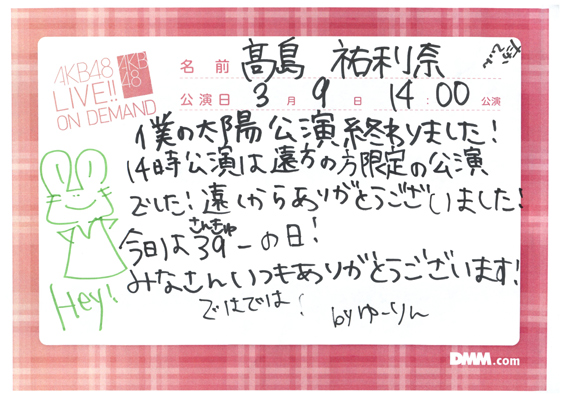 AKB48
LIVE!!
ON DEMAND
AKB
48
名前 髙島 祐利奈
公演日 3月 9日 14:00 公演
僕の太陽公演終わりました!
14時公演は遠方の方限定の公演
でした!遠くからありがとうございました!
さんきゅ
今日は39ーの日!
みなさんいつもありがとうございます!
ではでは!
byゆーりん
Hey!
DMM.com